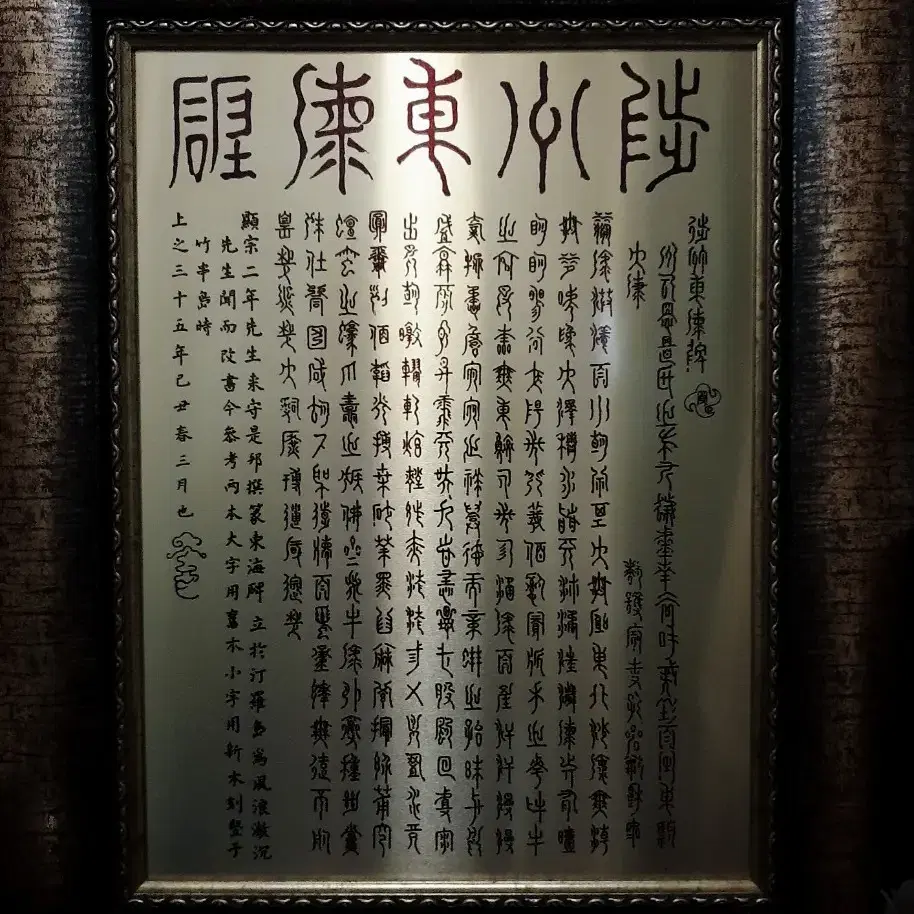 陟州東海碑
陟州東海碑
瀛海漭瀁百川朝宗其大無窮東北沙海無潮
無汐號爲大澤積水稽天浡潏汪濊海動有曀
明明暘谷太陽之門羲伯司賓析木之次牝牛
之宮日本無東鮫人之珍涵海百産汗汗漫漫
奇物譎詭宛宛之祥興德而章蚌之胎珠與月
盛衰旁氣昇霏天吳九首怪夔一股颷回且雨
出日朝暾轇軋炫熿紫赤滄滄三五月盈水鏡
圓靈列宿韜光扶桑沙華黑齒麻羅撮髻莆家
蜒蠻之蠔爪蛙之猴佛齊之牛海外雜種絶黨
殊俗同囿咸育古聖遠德百蠻重譯無遠不服
皇哉熙哉大治廣博遺風邈哉
顯宗二年先生來守是邦撰篆東海碑立於汀羅島為風浪激沉
先生聞而改書今參考兩本大字用舊本小字用新本刻竪于
竹串島時
上之三十五年己丑春三月也